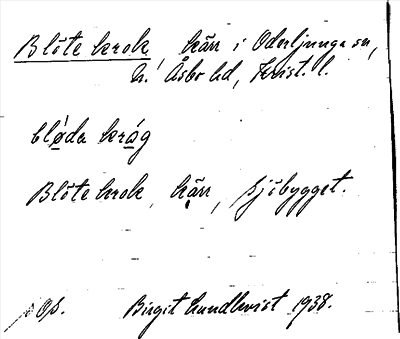 Blöte krok, kärr i Oderljunga sn,
N. Åsbo hd, Krist. l.
blø̀da krǻg
Blöte krok, kärr, Sjöbygget.
Op. Birgit Lundkvist 1938.